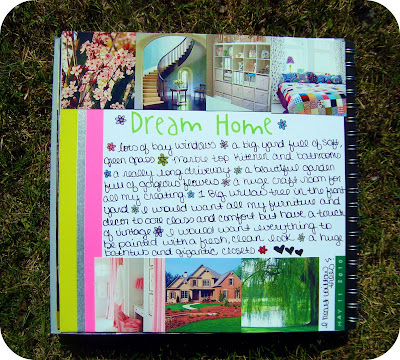 Dream Home
lots of bay windows a big yard full of soft,
green grass marble top kitchen and bathrooms
a really long driveway a beautiful garden
full of gorgeous flowers a huge craft room for
all my creating 1 big willow tree in the front
yard I would want all my furniture and
decor to ooze class and comfort but have a touch
of vintage I would want everything to
be painted with a fresh, clean look a huge
bathtub and gigantic closets
MAY 11 2010